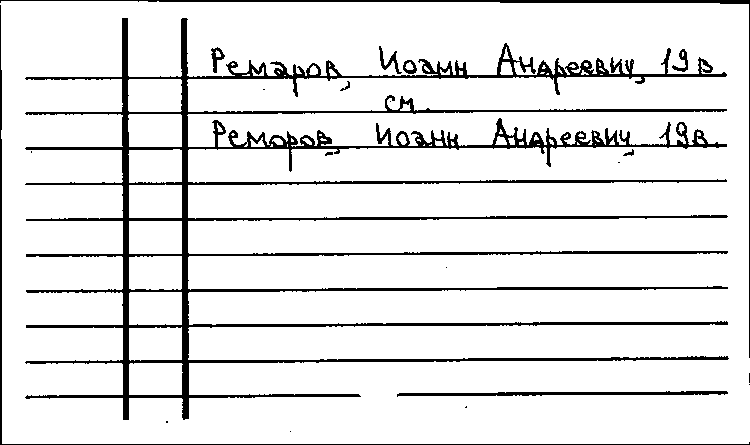 Ремаров, Иоанн Андреевич, 19 в.
см.
Реморов, Иоанн Андреевич, 19 в.